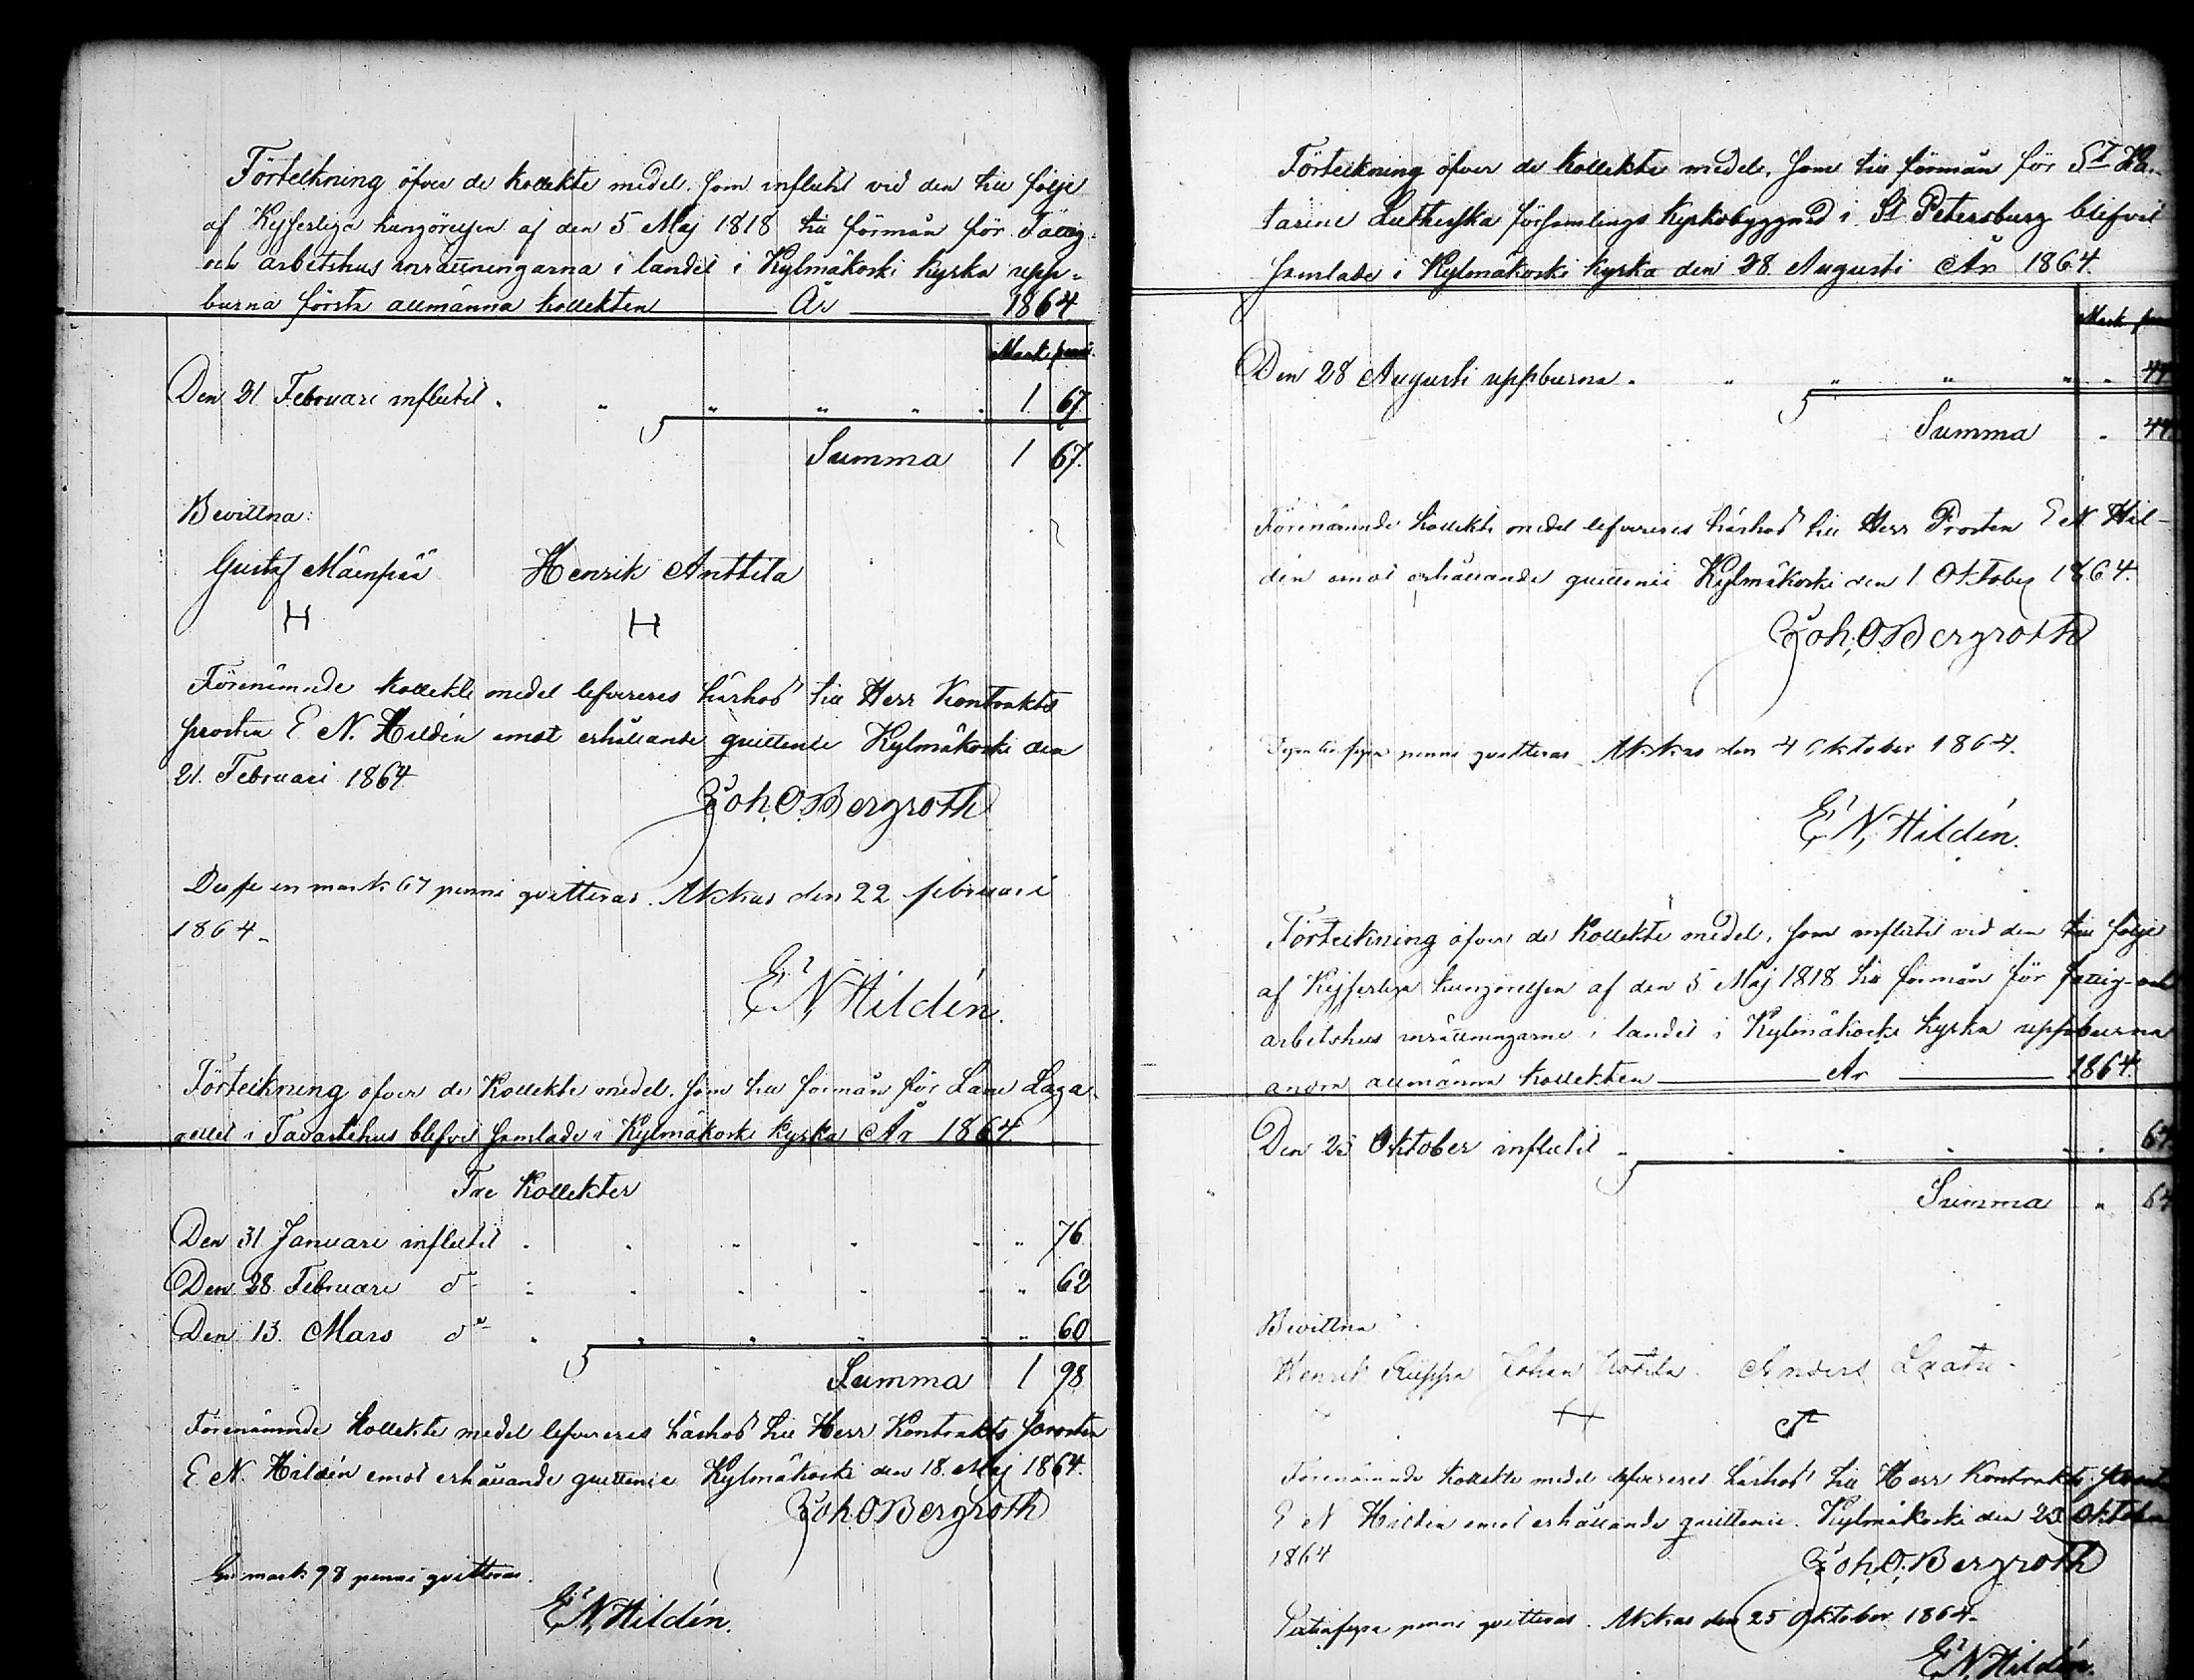 Förteckning öfver de Kollekte medel, som influtit vid den till följe
af Kejserliga kungörelsen af den 5 Maj 1818 till förmån för Fattig-
och arbetshus inrättningarna i landet i Kylmäkoski kyrka upp-
burna första allmänna kollekten År 1864
Mark penni
Den 21 Februari influtit 1 67
Summa 1 67.
Bevittna:
Gustaf Mäenpää Henrik Anttila
H H
Förenämnde kollekte medel lefvereres härhos till Herr Kontrakts
prosten E. N. Hildén emot erhållande quittence Kylmäkoski den
21. Februari 1864
Joh. O. Bergroth
Desse en mark 67 penni qvitteras. Akkas den 22 februari
1864.
E. N. Hildén.
Förteckning öfver de Kollekte medel, som till förmån för Läne Laza-
rettet i Tavastehus blefvit samlade i Kylmäkoski kyrka År 1864.
Tre Kollekter
Den 31 Januari influtit 76
Den 28 Februari do 62
Den 13. Mars do 60
Summa 1 98
Förenämnde kollekte medel lefvereres härhos till Herr Kontrakts prosten
E. N. Hildén emot erhållande quittence Kylmäkoski den 18. Maj 1864.
Joh. O. Bergroth
En mark 98 penni qvitteras.
E. N. Hildén.
Förteckning öfver de Kollekte medel, som till förmån för St Ka-
tarine Lutherska församlings kyrkobyggnad i St Petersburg blefvit
samlade i Kylmäkoski kyrka den 28 Augusti År 1864.
Mark
Den 28 Augusti uppburna 44
Summa 44
Förenämnde kollekte medel lefvereres härhos till Herr Prosten E N Hil-
dén emot erhållande quittence Kylmäkoski den 1. Oktober 1864.
Joh. O. Bergroth
Fyratiofyra penni qvitteras. Akkas den 4 Oktober 1864.
E. N. Hildén.
Förteckning öfver de Kollekte medel, som influtit vid den till följe
af Kejserliga kungörelsen af den 5 Maj 1818 till förmån för fattig- och
arbetshus inrättningarne i landet i Kylmäkoski kyrka uppburna
andra allmänna kollekten År 1864.
Den 23 Oktober influtit 64
Summa 64
Bevittna
Henrik Johan Anders
Förenämnde kollekte medel lefvereres härhos till Herr Kontrakts
E N Hildén emot erhållande quittence. Kylmäkoski den 23 Oktober
1864
Joh. O. Bergroth
Sextiofyra penni qvitteras. Akkas den 25 Oktober 1864.
E. N. Hildén.